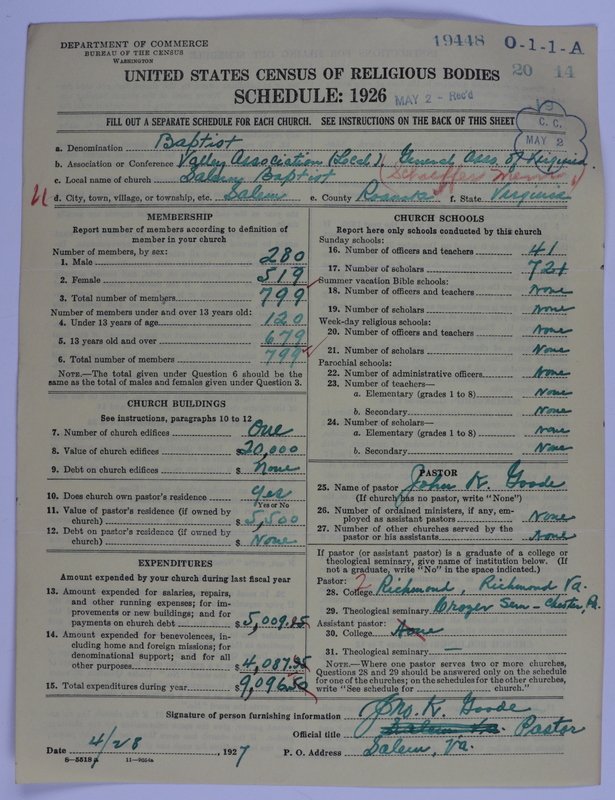 DEPARTMENT OF COMMERCE
BUREAU OF THE CENSUS
WASHINGTON
19448 O-1-1-A
20 14
UNITED STATES CENSUS OF RELIGIOUS BODIES
SCHEDULE: 1926
MAY 2 - Rec'd
C. C.
MAY 2
FILL OUT A SEPARATE SCHEDULE FOR EACH CHURCH. SEE INSTRUCTIONS ON THE BACK OF THIS SHEET
a. Denomination Baptist
b. Association or Conference Valley Association (Local), General Asso. of Virginia
c. Local name of church Salem Baptist
d. City, town, village, or township, etc. Salem e. County Roanoke f. State Virginia
MEMBERSHIP
Report number of members according to definition of
member in your church
Number of members, by sex:
1. Male 280
2. Female 519
3. Total number of members 799
Number of members under and over 13 years old:
4. Under 13 years of age 120
5. 13 years old and over 679
6. Total number of members 799
NOTE.—The total given under Question 6 should be
same as the total of males and females given under Question 3.
CHURCH BUILDINGS
See instructions, paragraphs 10 to 12
7. Number of church edifices One
8. Value of church edifices $20,000
9. Debt on church edifices $ None
10. Does church own pastor's residence Yes
Yes or No
11. Value of pastor's residence (if owned by
church) $5,500
12. Debt on pastor's residence (if owned by
church) $ None
EXPENDITURES
Amount expended by your church during last fiscal year
13. Amount expended for salaries, repairs,
and other running expenses; for im-
provements or new buildings; and for
payments on church debt $5,009.25
14. Amount expended for benevolences, in-
cluding home and foreign missions; for
denominational support; and for all
other purposes $4,087.25
15. Total expenditures during year $9,096.50
CHURCH SCHOOLS
Report here only schools conducted by this church
Sunday schools:
16. Number of officers and teachers 41
17. Number of scholars 721
Summer vacation Bible schools:
18. Number of officers and teachers None
19. Number of scholars None
Week-day religious schools:
20. Number of officers and teachers None
21. Number of scholars None
Parochial schools:
22. Number of administrative officers None
23. Number of teachers—
a. Elementary (grades 1 to 8) None
b. Secondary None
24. Number of scholars—
a. Elementary (grades 1 to 8) None
b. Secondary None
PASTOR
25. Name of pastor John K. Goode
(If church has no pastor, write "None")
26. Number of ordained ministers, if any, em-
ployed as assistant pastors None
27. Number of other churches served by the
pastor or his assistants None
If pastor (or assistant pastor) is a graduate of a college or
theological seminary, give name of institution below. (If
not a graduate, write "No" in the space indicated.)
Pastor: 2
28. College Richmond, Richmond Va.
29. Theological seminary Crozer Sem - Chester, Pa.
Assistant pastor:
30. College None
31. Theological seminary —
NOTE.—Where one pastor serves two or more churches,
Questions 28 and 29 should be answered only on the schedule
for one of the churches; on the schedules for the other churches,
write "See schedule for church."
Signature of person furnishing information Jno. K. Goode
Official title Salem Va. Pastor
Date 4/28, 1927 P. O. Address Salem, Va.
8-5518 a 11-9554a